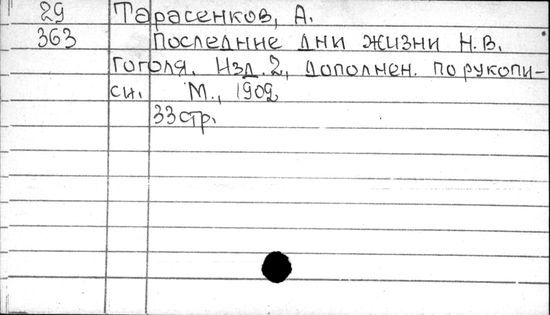 29 Тарасенков, А.
363 Последние дни жизни Н.В.
Гоголя. Изд. 2, дополнен. по рукопи-
си. М., 1902
33 стр.